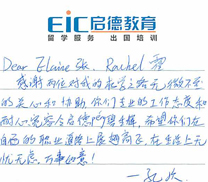 EIC启德教育
留学服务 出国培训
Dear Elaine 张、Rachel 雷
感谢两位对我的教学之路无微不至
的关心和协助。你们专业的工作态度和
耐心完容令启德而骄傲。希望你们在
自己的职业道路上展翅高飞。在生活上无
忧无虑、万事如意！